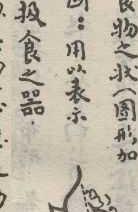 物之狀（圓形加
：用以表示
扱食之器